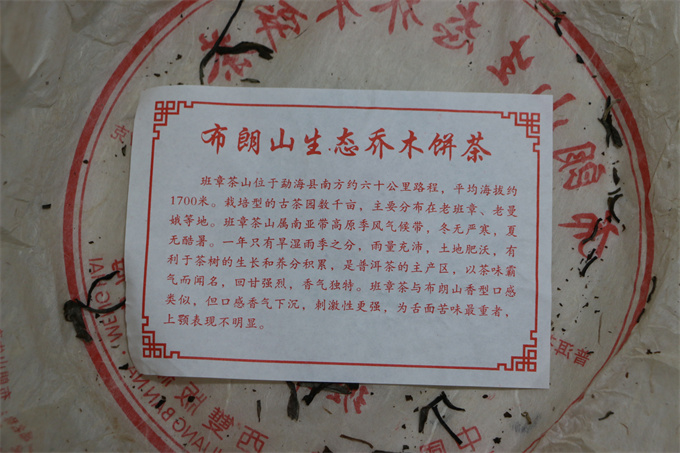 布朗山生态乔木饼茶
班章茶山位于勐海县南方约六十公里路程，平均海拔约
1700米。栽培型的古茶园数千亩，主要分布在老班章、老曼
娥等地。班章茶山属南亚带高原季风气候带，冬无严寒，夏
无酷暑。一年只有旱湿雨季之分，雨量充沛，土地肥沃，有
利于茶树的生长和养分积累，是普洱茶的主产区，以茶味霸
气而闻名，回甘强烈，香气独特。班章茶与布朗山香型口感
类似，但口感香气下沉，刺激性更强，为舌面苦味最重者，
上颚表现不明显。
西雙版
中國
普洱